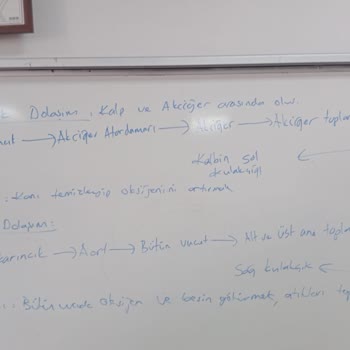 k Dolaşım : Kalp ve Akciğer arasında olur.
→ Akciğer Atardamarı → Akciğer → Akciğer topla
Kalbin Sol ←
kulakçığı
: Kanı temizleyip oksijenini artırmak
Dolaşım:
arıncık → Aort → Bütün vücut → Alt ve üst ana topla
Sağ kulakçık ←
: Bütün vücuda oksijen ve besin götürmek, atıkları top